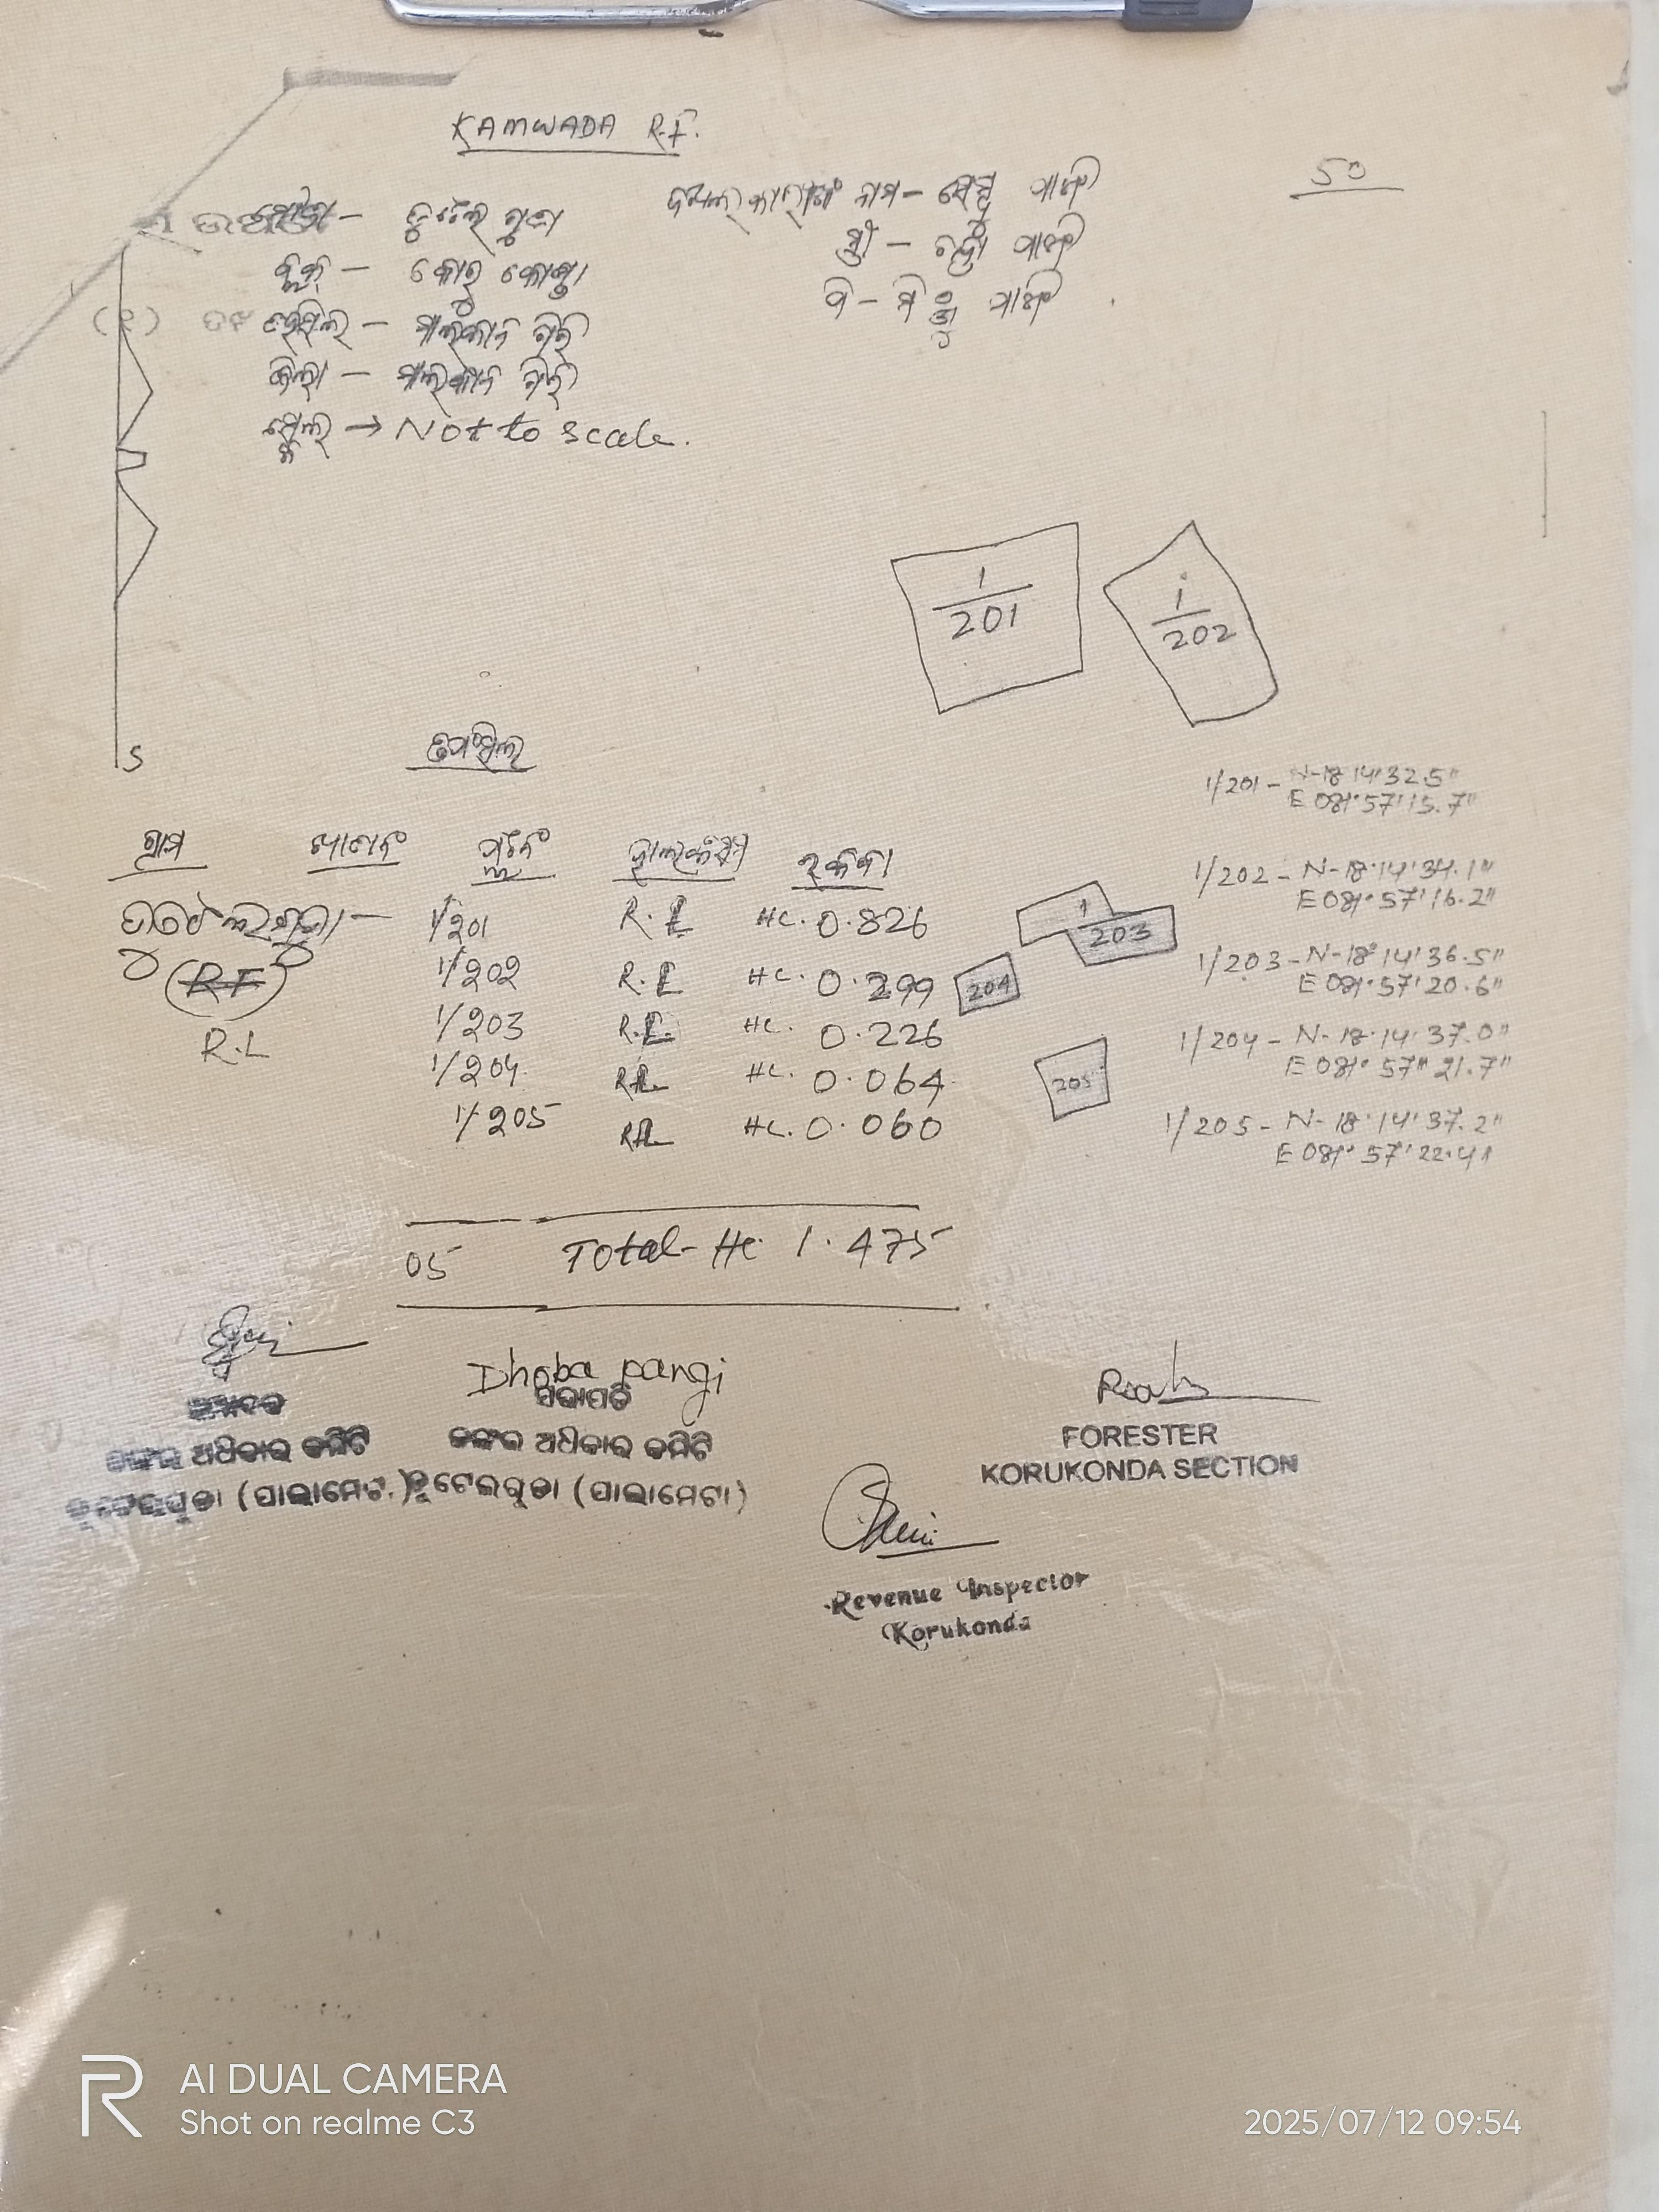 KAMWADA R.F.
50
ମୌଜା - ତୁଟେଲ ଗୁଡା
ବ୍ଲକ୍ - କୋରୁ କୋଣ୍ଡା
ତହସିଲ - ମାଲକାନ ଗିରି
ଜିଲ୍ଲା - ମାଲକାନ ଗିରି
ସ୍କେଲ୍ → Not to scale.
ଦଖଲକାରୀଙ୍କ ନାମ -
ସ୍ତ୍ରୀ -
ପି -
1/201
1/202
S
ତପସିଲ
1/201 - N-18°14'32.5"
E 081°57'15.7"
1/202 - N-18°14'34.1"
E 081°57'16.2"
1/203 - N-18°14'36.5"
E 081°57'20.6"
1/204 - N-18°14'37.0"
E 081°57"21.7"
1/205 - N-18°14'37.2"
E 081°57'22.4"
ଗ୍ରାମ ଖାତାନଂ ପ୍ଲଟନଂ ହାଲକିସମ ରକବା
1/201 R.L HC. 0.826
(RF) 1/202 R.L HC. 0.299
R.L 1/203 R.L. HC. 0.226
1/204 RL HC. 0.064
1/205 RL HC. 0.060
1/203
204
205
05 Total- Hc 1.475
Dhoba pangi
ସଭାପତି
ଜଙ୍ଗଲ ଅଧିକାର କମିଟି
ତୁଟେଲଗୁଡା (ପାଲାମେଟା)
ଜଙ୍ଗଲ ଅଧିକାର କମିଟି
ତୁଟେଲଗୁଡା (ପାଲାମେଟା)
FORESTER
KORUKONDA SECTION
Revenue Inspector
Korukonda
AI DUAL CAMERA
Shot on realme C3
2025/07/12 09:54